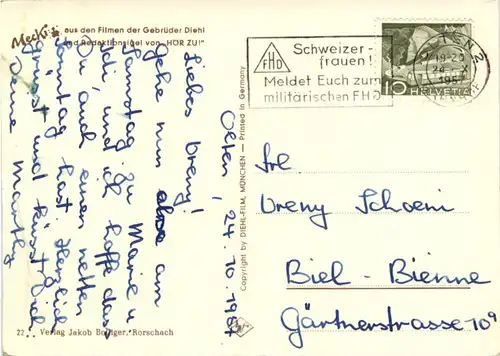 Mecki aus den Filmen der Gebrüder Diehl
und Redaktionsigel von „HÖR ZU!"
Schweizer-
frauen!
Meldet Euch zum
militärischen FHD
FHD
OLTEN 2
10 HELVETIA
Olten, 24. 10. 1957
Liebes Vreny!
Gehe nun am
Samstag zu Marie u.
Edi, und ich hoffe dass
Du auch einen netten
Sonntag hast. Herzlich
grüsst und küsst Dich
Deine Marthy
Frl
Vreny Schoeni
Biel-Bienne
Gärtnerstrasse 109
Copyright by DIEHL-FILM, MÜNCHEN — Printed in Germany
22 Verlag Jakob Bolliger, Rorschach